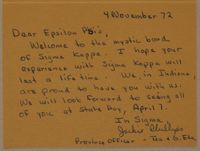 4 November 72
Dear Epsilon Psi's,
Welcome to the mystic bond
of Sigma Kappa. I hope your
experience with Sigma Kappa will
last a life time. We, in Indiana,
are proud to have you with us.
We will look forward to seeing all
of you at State Day, April 7.
In Sigma,
Jackie Phillips
Province Officer